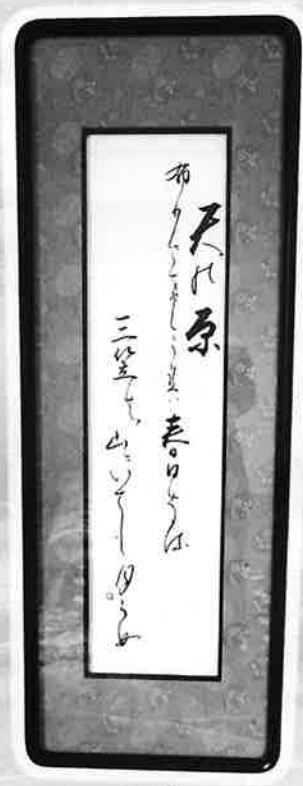 天の原
布りさけみれは 春日なる
三笠の山にいてし月かも